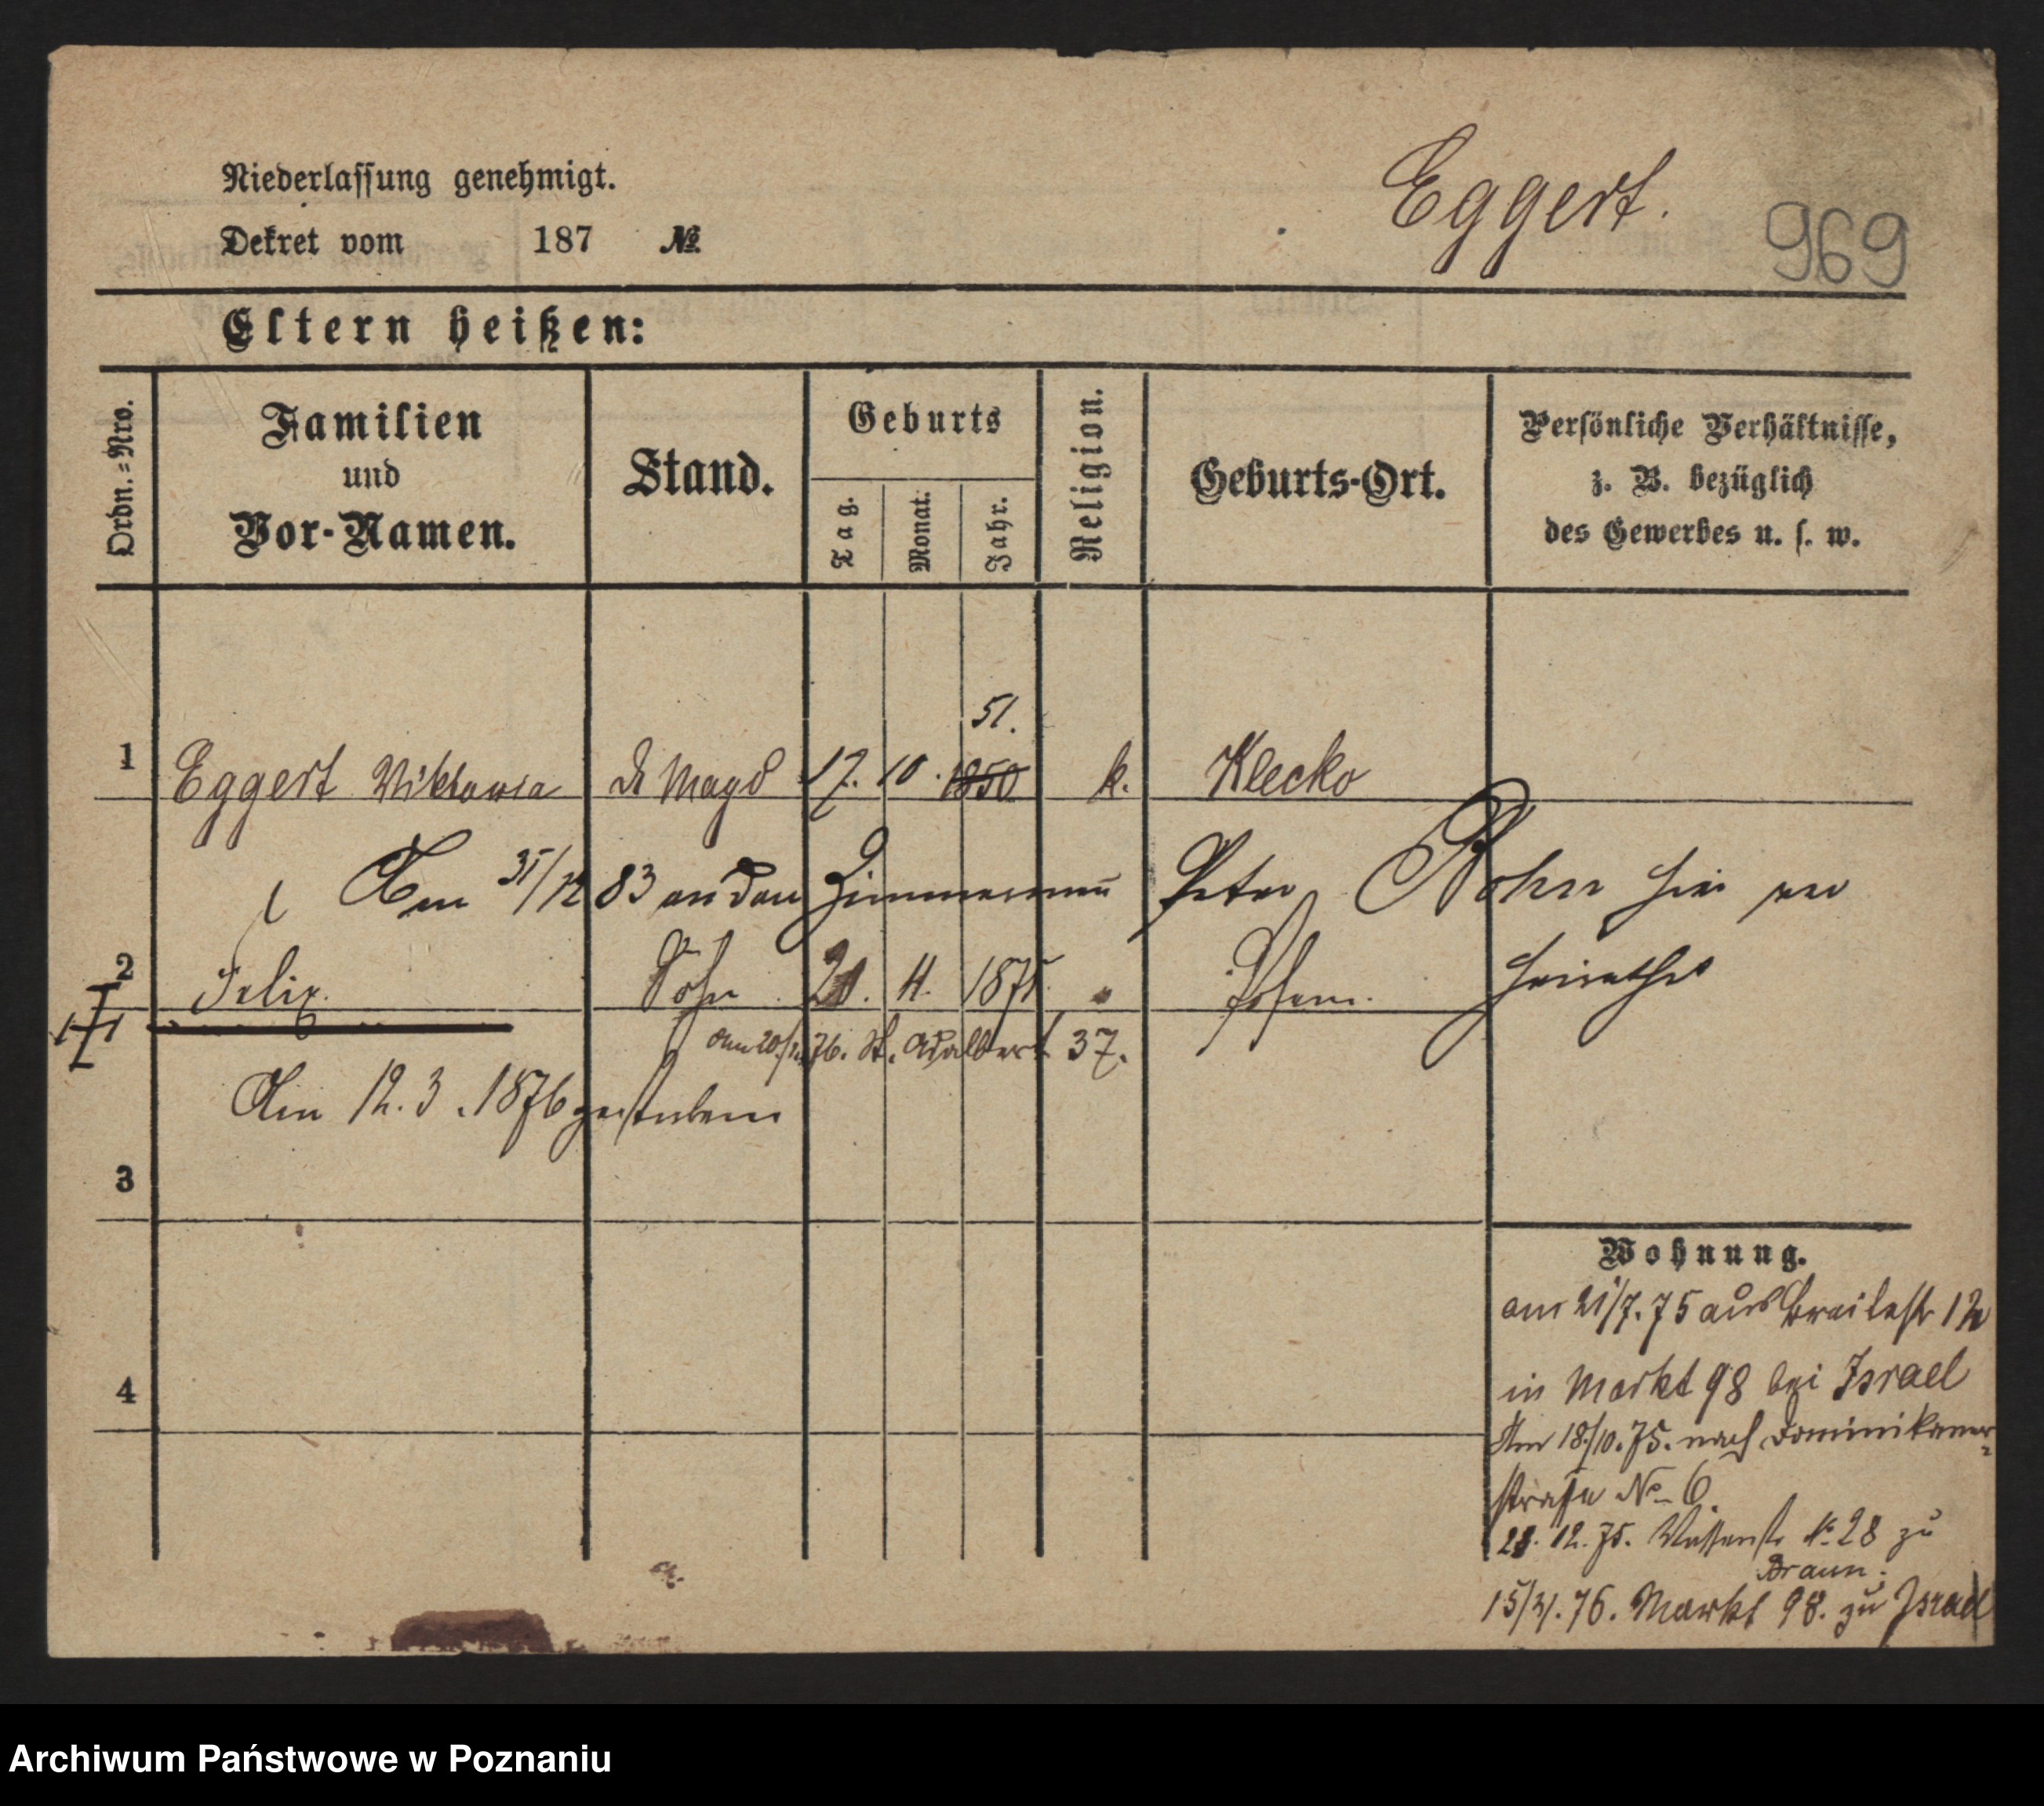 Niederlassung genehmigt.
Dekret vom 187 №
Eggert.
969
Eltern heißen:
Ordn.=Nro.
Familien
und
Vor-Namen.
Stand.
Geburts
Tag.
Monat.
Jahr.
Religion.
Geburts-Ort.
Persönliche Verhältnisse,
z. B. bezüglich
des Gewerbes u. s. w.
51.
1 Eggert Viktoria Magd 17. 10. 1850 k. Klecko
Am 31/12 83 an den Zimmermann Peter Rohn hier ver
heirathet
2 Felix. Sohn 4. 1875 Posen.
76. St. Adalbert 37.
Am 12.3.1876 gestorben
3
4
Wohnung.
am 21/7.75 aus Breitestr 12
in Markt 98 bei Israel
Am 18/10.75. nach Dominikaner-
straße No 6.
12.75. № 28 zu
Braun.
76. Markt 98. zu Israel
Archiwum Państwowe w Poznaniu